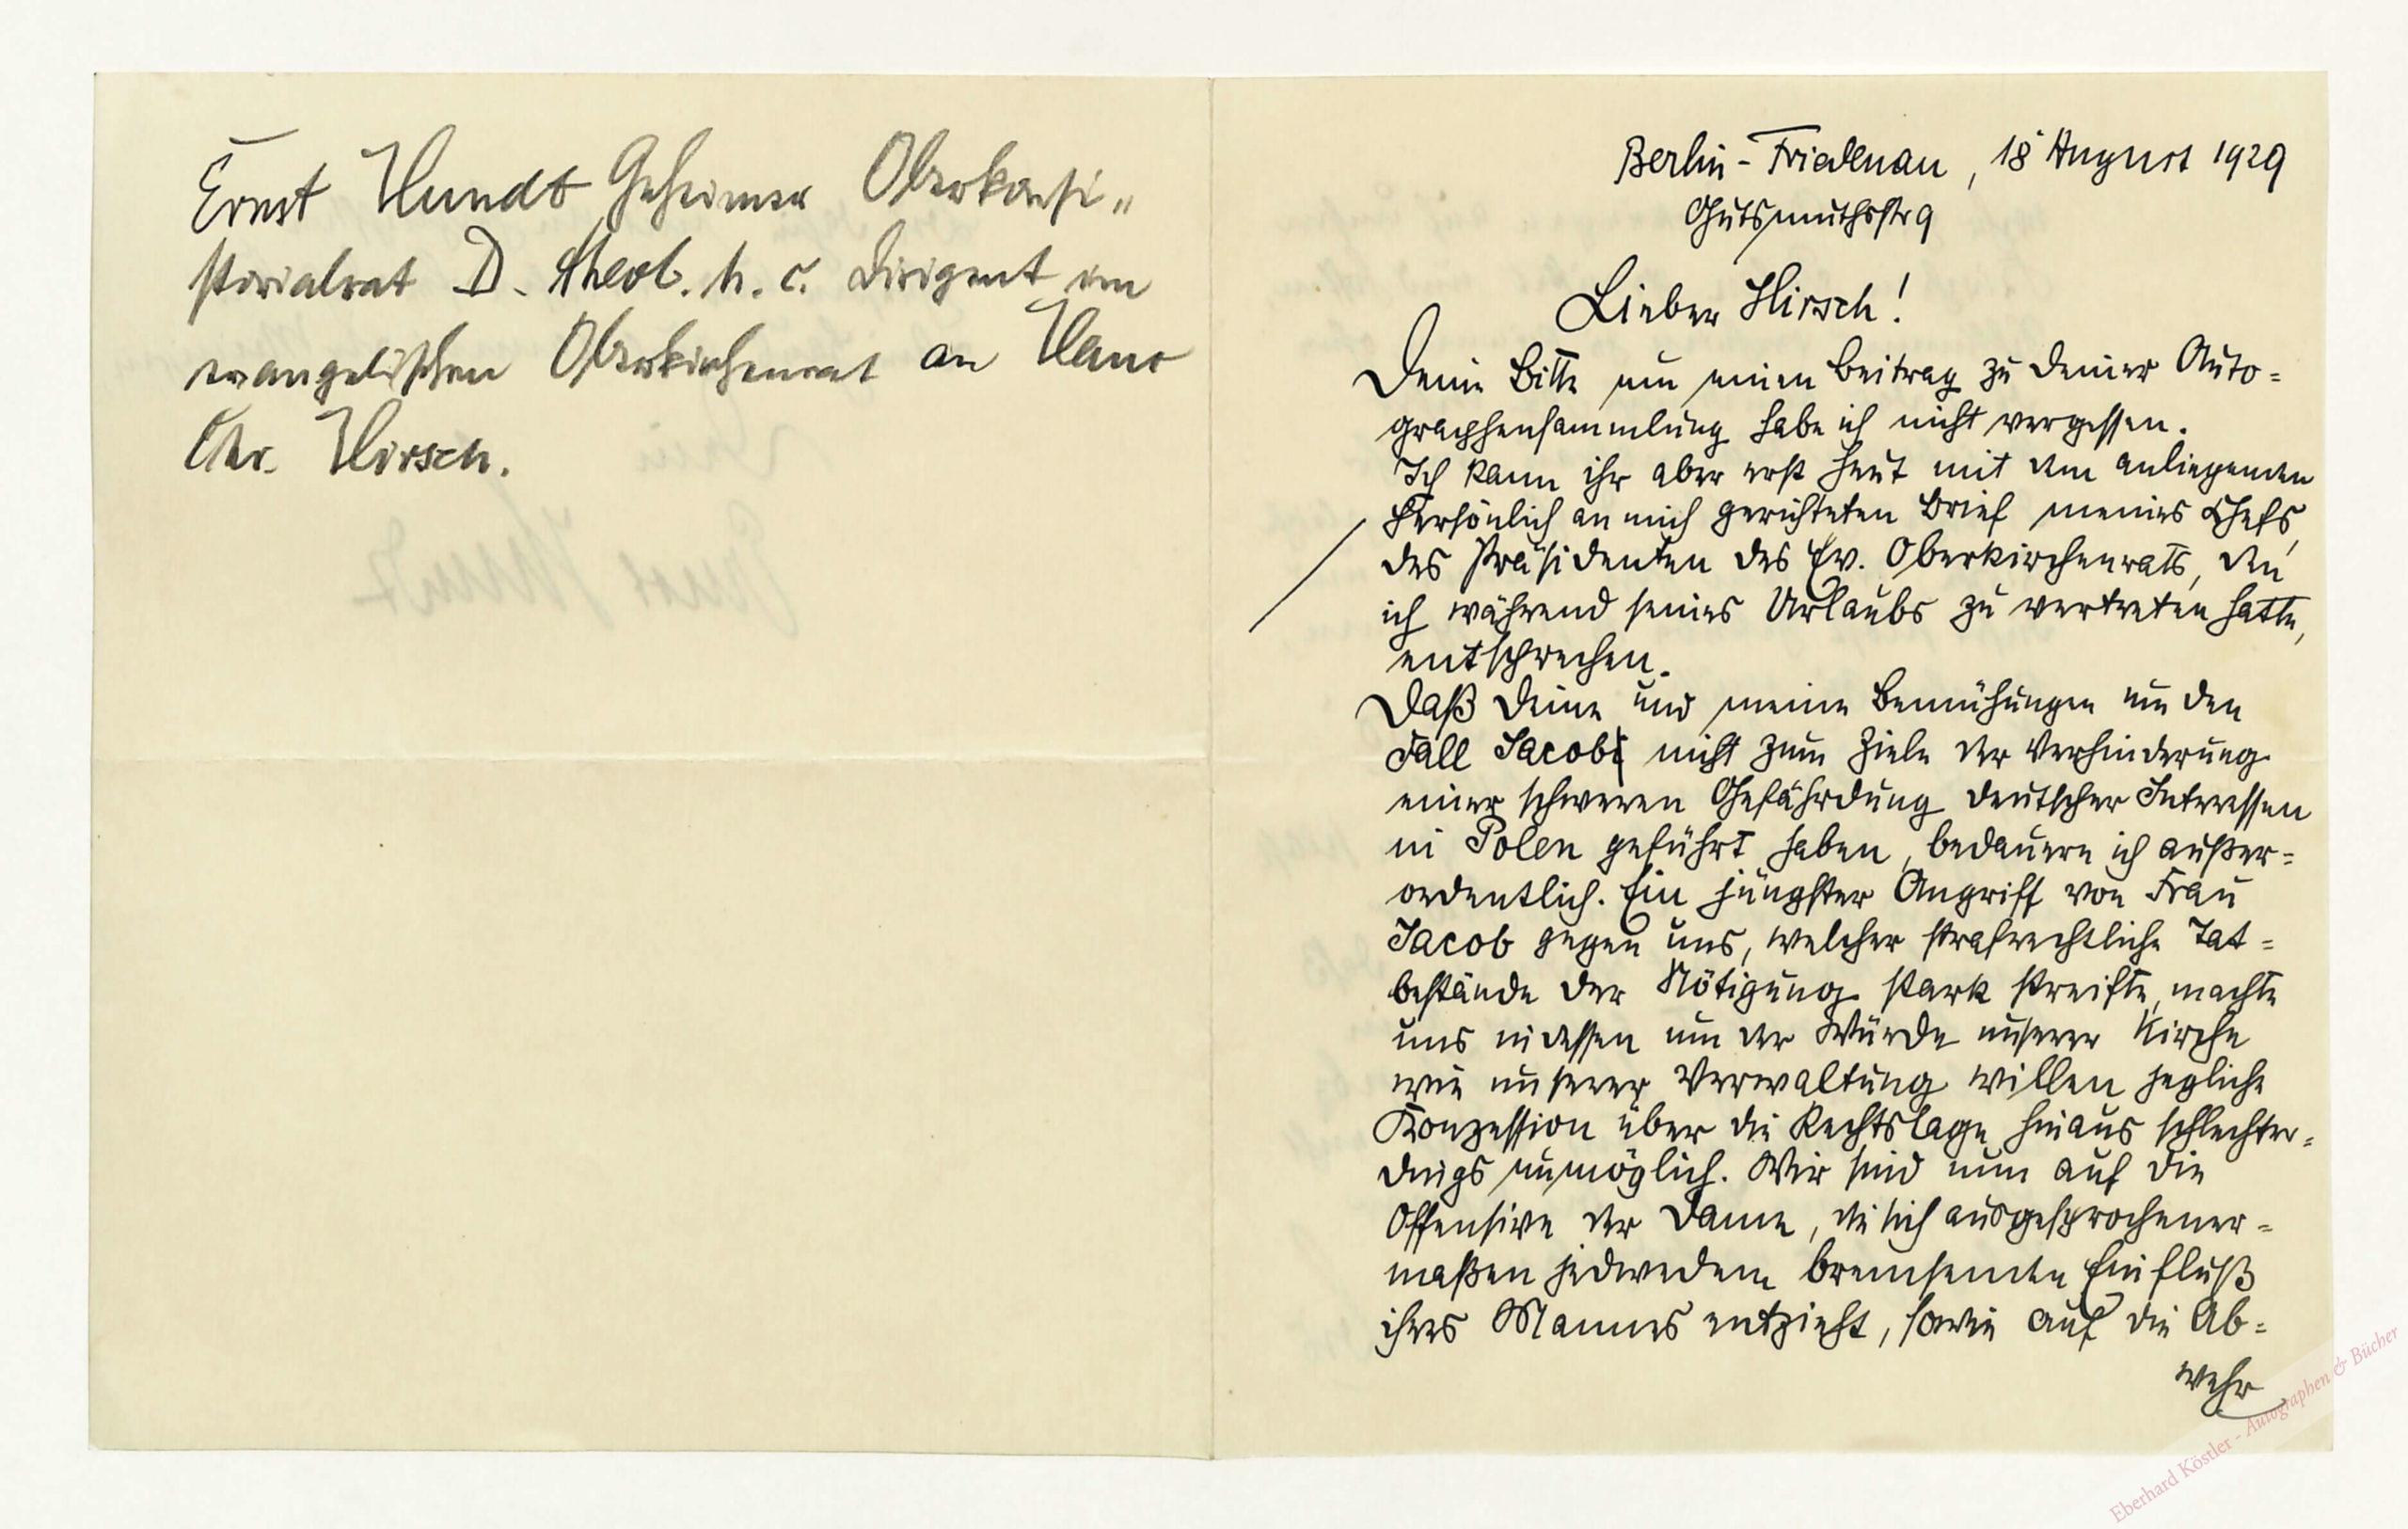 Ernst Hundt Geheimer Oberkonsi„
storialrat D. theol. h. c. Dirigent im
evangelischen Oberkirchenrat an Hans
Chr. Hirsch.
Berlin-Friedenau, 18 August 1929
Gutsmuthsstr 9
Lieber Hirsch!
Deine Bitte um einen Beitrag zu Deiner Auto=
graphensammlung habe ich nicht vergessen.
Ich kann ihr aber erst heut mit dem anliegenden
persönlich an mich gerichteten Brief meines Chefs,
des Präsidenten des Ev. Oberkirchenrats, den
ich während seines Urlaubs zu vertreten hatte,
entsprechen.
Daß Deine und meine Bemühungen um den
Fall Jacob nicht zum Ziele der Verhinderung
einer schweren Gefährdung deutscher Interessen
in Polen geführt haben, bedauere ich außer=
ordentlich. Ein jüngster Angriff von Frau
Jacob gegen uns, welcher strafrechtliche Tat=
bestände der Nötigung stark streifte, machte
uns indessen um der Würde unserer Kirche
wie unserer Verwaltung willen jegliche
Konzession über die Rechtslage hinaus schlechter=
dings unmöglich. Wir sind nun auf die
Offensive der Dame, die sich ausgesprochener=
maßen jedwedem bremsenden Einfluß
ihres Mannes entzieht, sowie auf die Ab=
wehr
Eberhard Köstler - Autographen & Bücher